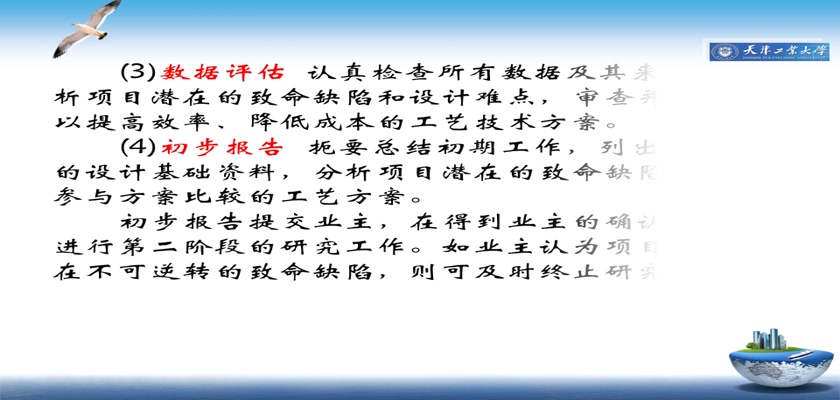 天津工业大学
(3)数据评估 认真检查所有数据及其来
析项目潜在的致命缺陷和设计难点，审查并
以提高效率、降低成本的工艺技术方案。
(4)初步报告 扼要总结初期工作，列出
的设计基础资料，分析项目潜在的致命缺陷
参与方案比较的工艺方案。
初步报告提交业主，在得到业主的确认
进行第二阶段的研究工作。如业主认为项目
在不可逆转的致命缺陷，则可及时终止研究